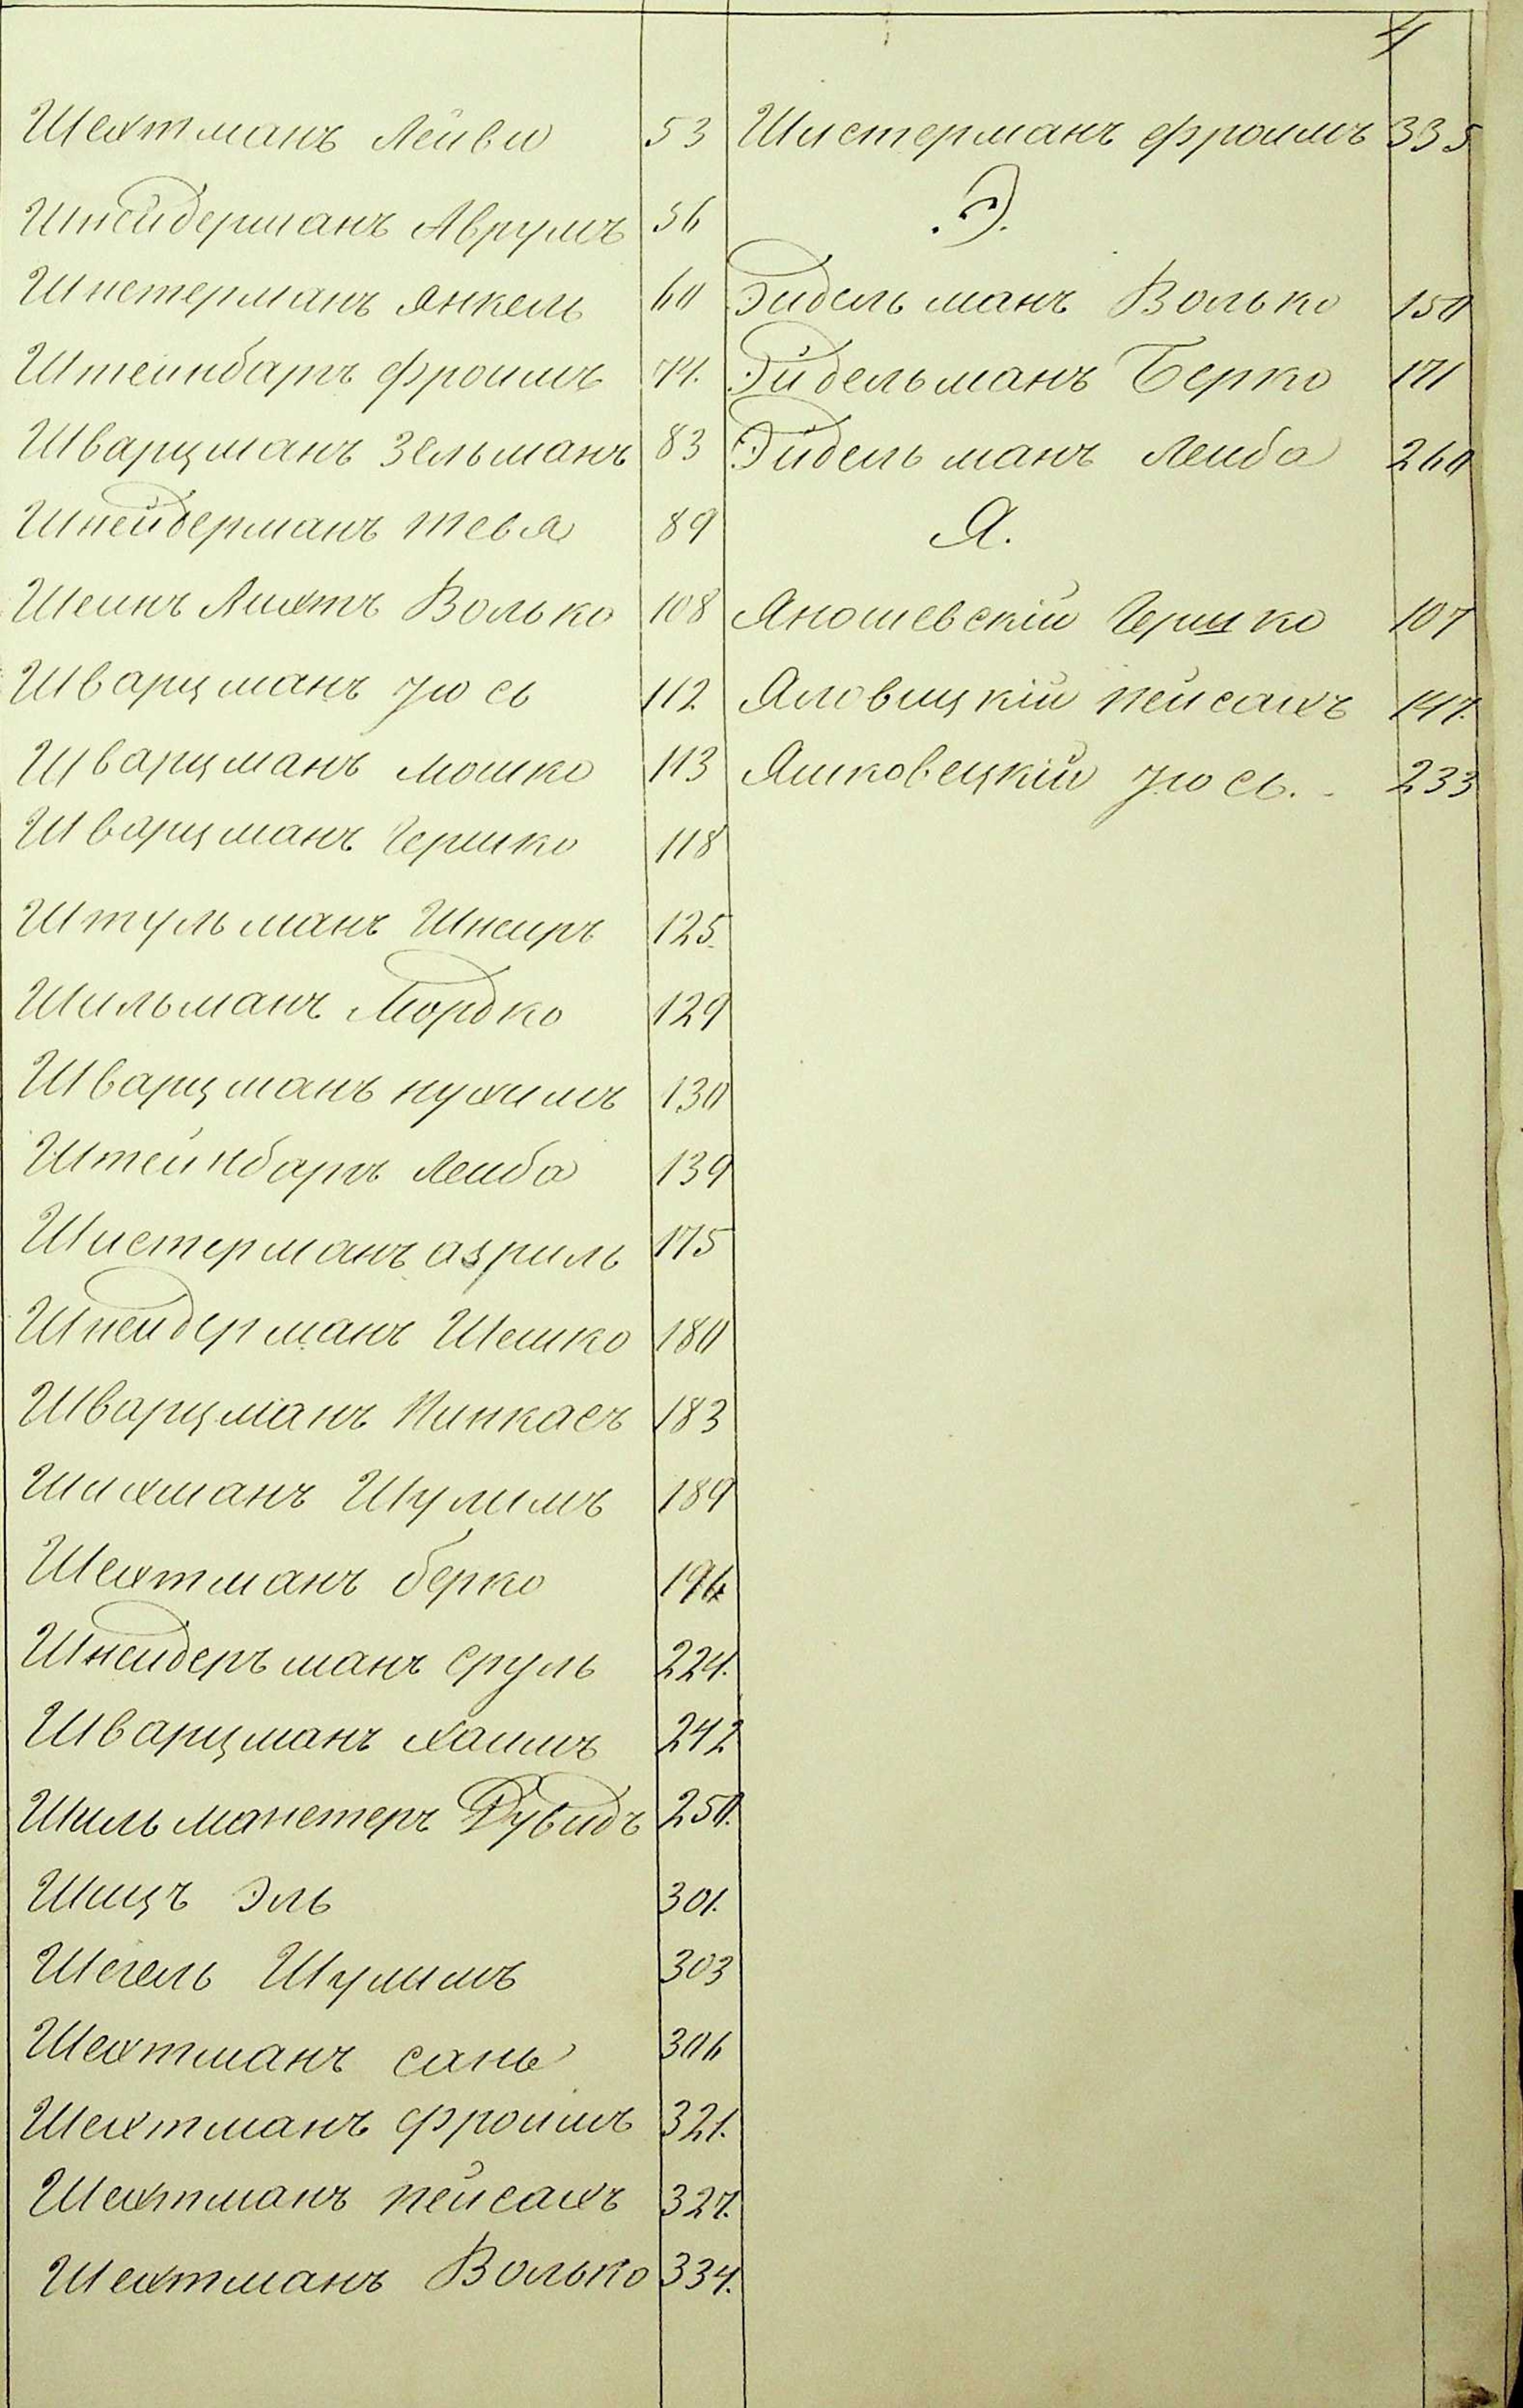 4
Шехтманъ Лейви 53
Шнейдерманъ Аврумъ 56
Шистерманъ Янкель 60
Штейнбаръ Фроимъ 74.
Шварцманъ Зельманъ 83
Шнейдерманъ Тевя 89
Шеинъ Лихтъ Волько 108
Шварцманъ Іось 112
Шварцманъ Мошко 113
Шварцманъ Гершко 118
Штульманъ Шнеиръ 125.
Шильманъ Мордко 129
Шварцманъ Нухимъ 130
Штейнбаръ Лейба 139
Шистерманъ Азриль 175
Шнейдерманъ Шешко 180
Шварцманъ Пинкасъ 183
Шихманъ Шулимъ 189
Шехтманъ Берко 194
Шнейдеръманъ Сруль 224.
Шварцманъ Хаимъ 242
Шильманстеръ Дувидъ 250.
Шицъ Эль 301.
Шегель Шулимъ 303
Шехтманъ Сань 306
Шехтманъ Фроимъ 321.
Шехтманъ Пейсахъ 327.
Шехтманъ Волько 334.
Шистерманъ Фроимъ 335
.Э.
Эидельманъ Волько 150
Эйдельманъ Берко 171
Эйдельманъ Леиба 260
Я.
Яношевскій Гершко 107
Яловицкій Пейсахъ 147.
Яшковецкій Іось. 233